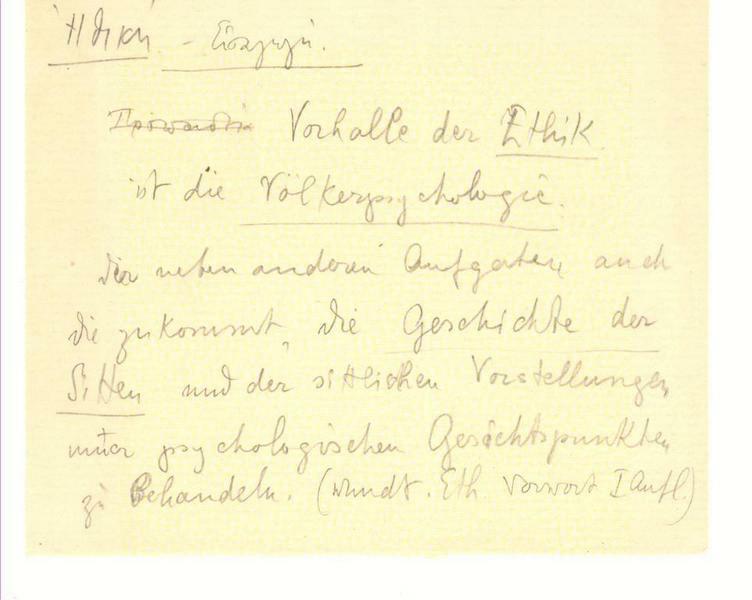 Ἠθική - Εἰσαγωγή.
Vorhalle der Ethik
ist die Völkerpsychologie.
der neben anderen Aufgaben auch
die zukommt, die Geschichte der
Sitten und der sittlichen Vorstellungen
unter psychologischen Gesichtspunkten
zu behandeln. (Wundt. Eth Vorwort I Aufl.)